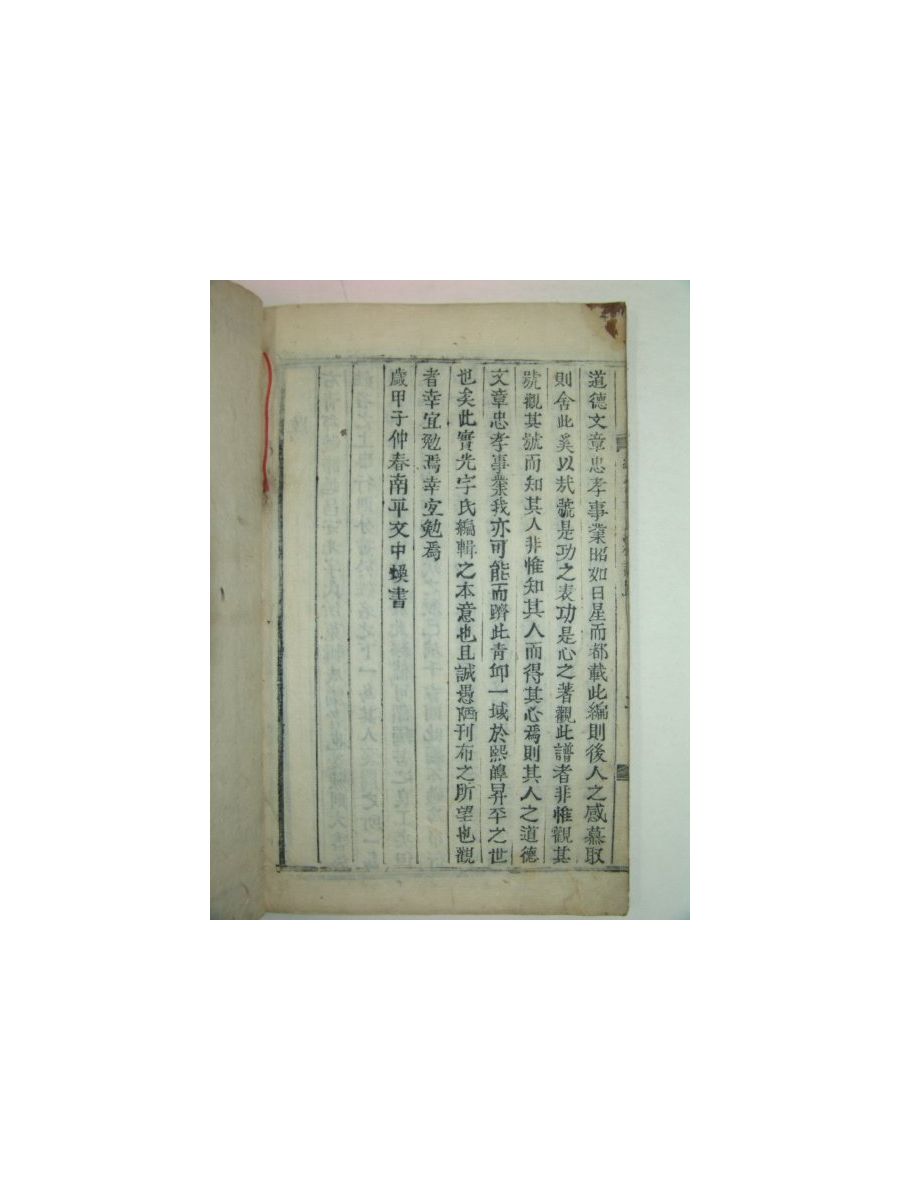 道德文章忠孝事業昭如日星而都載此編則後人之感慕取
則舍此奚以㢤號是功之表功是心之著觀此譜者非惟觀其
號觀其號而知其人非惟知其人而得其心焉則其人之道德
文章忠孝事業我亦可能而躋此青邱一域於熙皥昇平之世
也矣此實先字氏編輯之本意也且誠愚陋刊布之所望也觀
者幸宜勉焉幸宜勉焉
歲甲子仲春南平文中煥書